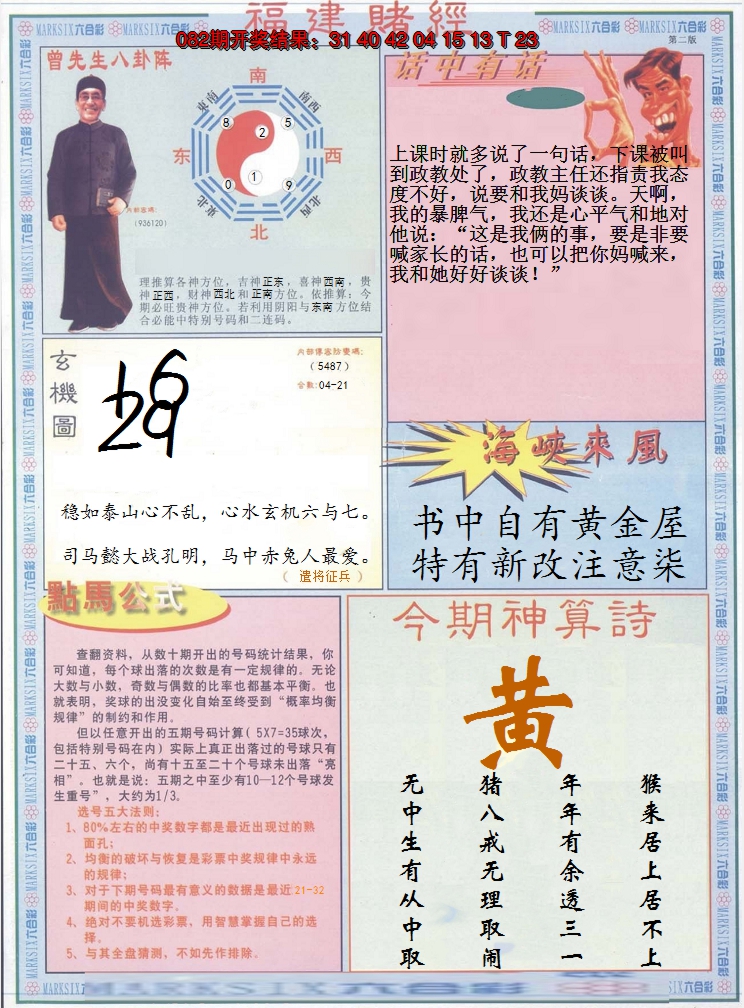 福建賭經
082期开奖结果：31 40 42 04 15 13 T 23
MARKSIX六合彩
第二版
曾先生八卦阵
南
东南
西南
8
2
5
东
西
0
1
9
东北
西北
北
内部密碼:
(936120)
理推算各神方位，吉神正东，喜神西南，贵
神正西，财神西北和正南方位。依推算：今
期必旺贵神方位。若利用阴阳与东南方位结
合必能中特别号码和二连码。
话中有话
上课时就多说了一句话，下课被叫
到政教处了，政教主任还指责我态
度不好，说要和我妈谈谈。天啊，
我的暴脾气，我还是心平气和地对
他说：“这是我俩的事，要是非要
喊家长的话，也可以把你妈喊来，
我和她好好谈谈！”
玄機圖
内部傳密防變碼:
(5487)
合數:04-21
稳如泰山心不乱，心水玄机六与七。
司马懿大战孔明，马中赤兔人最爱。
（ 遣将征兵 ）
海峽來風
书中自有黄金屋
特有新改注意柒
點馬公式
查翻资料，从数十期开出的号码统计结果，你
可知道，每个球出落的次数是有一定规律的。无论
大数与小数，奇数与偶数的比率也都基本平衡。也
就表明，奖球的出没变化自始至终受到“概率均衡
规律”的制约和作用。
但以任意开出的五期号码计算( 5X7=35球次，
包括特别号码在内) 实际上真正出落过的号球只有
二十五、六个，尚有十五至二十个号球未出落“亮
相”。也就是说：五期之中至少有10—12个号球发
生重号”，大约为1/3。
选号五大法则：
1、80%左右的中奖数字都是最近出现过的熟
面孔；
2、均衡的破坏与恢复是彩票中奖规律中永远
的规律；
3、对于下期号码最有意义的数据是最近21-32
期间的中奖数字。
4、绝对不要机选彩票，用智慧掌握自己的选
择。
5、与其全盘猜测，不如先作排除。
今期神算詩
黄
猴来居上居不上
年年有余透三一
猪八戒无理取闹
无中生有从中取